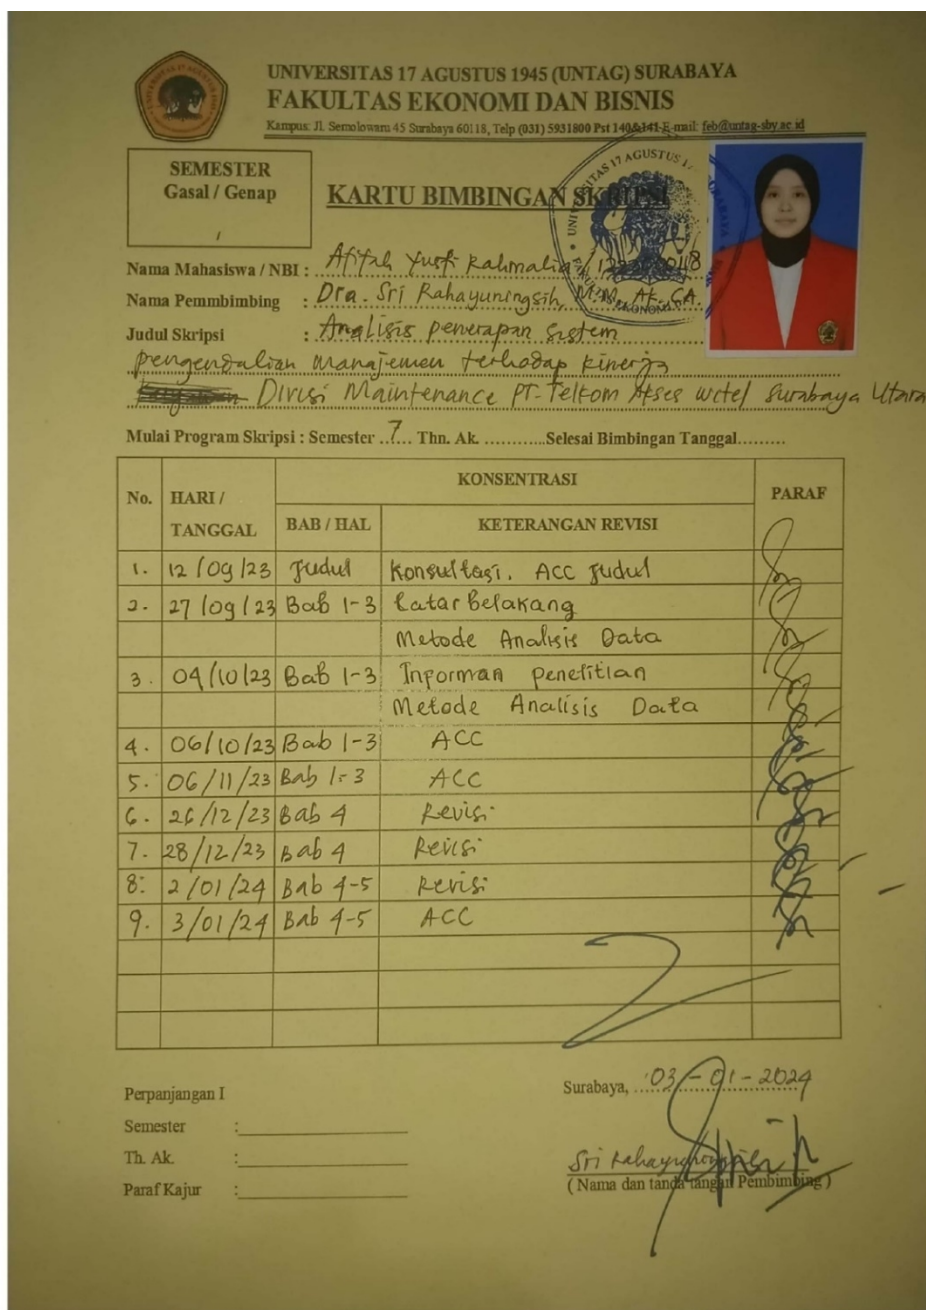 UNIVERSITAS 17 AGUSTUS 1945 (UNTAG) SURABAYA
FAKULTAS EKONOMI DAN BISNIS
Kampus: Jl. Semolowaru 45 Surabaya 60118, Telp (031) 5931800 Pst 140&141 E-mail: feb@untag-sby.ac.id
SEMESTER
Gasal / Genap
/
KARTU BIMBINGAN SKRIPSI
Nama Mahasiswa / NBI : Afifah Yusfi Rahmalia /
Nama Pemmbimbing : Dra. Sri Rahayuningsih, M.M, Ak, CA.
Judul Skripsi : Analisis penerapan sistem
pengendalian manajemen terhadap kinerja
Divisi Maintenance PT. Telkom Akses witel Surabaya Utara
Mulai Program Skripsi : Semester ..7... Thn. Ak. ............Selesai Bimbingan Tanggal.........
No. HARI / TANGGAL KONSENTRASI PARAF
BAB / HAL KETERANGAN REVISI
1. 12/09/23 Judul Konsultasi. ACC Judul
2. 27/09/23 Bab 1-3 Latar Belakang
Metode Analisis Data
3. 04/10/23 Bab 1-3 Informan penelitian
Metode Analisis Data
4. 06/10/23 Bab 1-3 ACC
5. 06/11/23 Bab 1-3 ACC
6. 26/12/23 Bab 4 Revisi
7. 28/12/23 Bab 4 Revisi
8. 2/01/24 Bab 4-5 Revisi
9. 3/01/24 Bab 4-5 ACC
Perpanjangan I
Surabaya, 03-01-2024
Semester :
Th. Ak. :
Sri Rahayuningsih
Paraf Kajur :
( Nama dan tanda tangan Pembimbing )